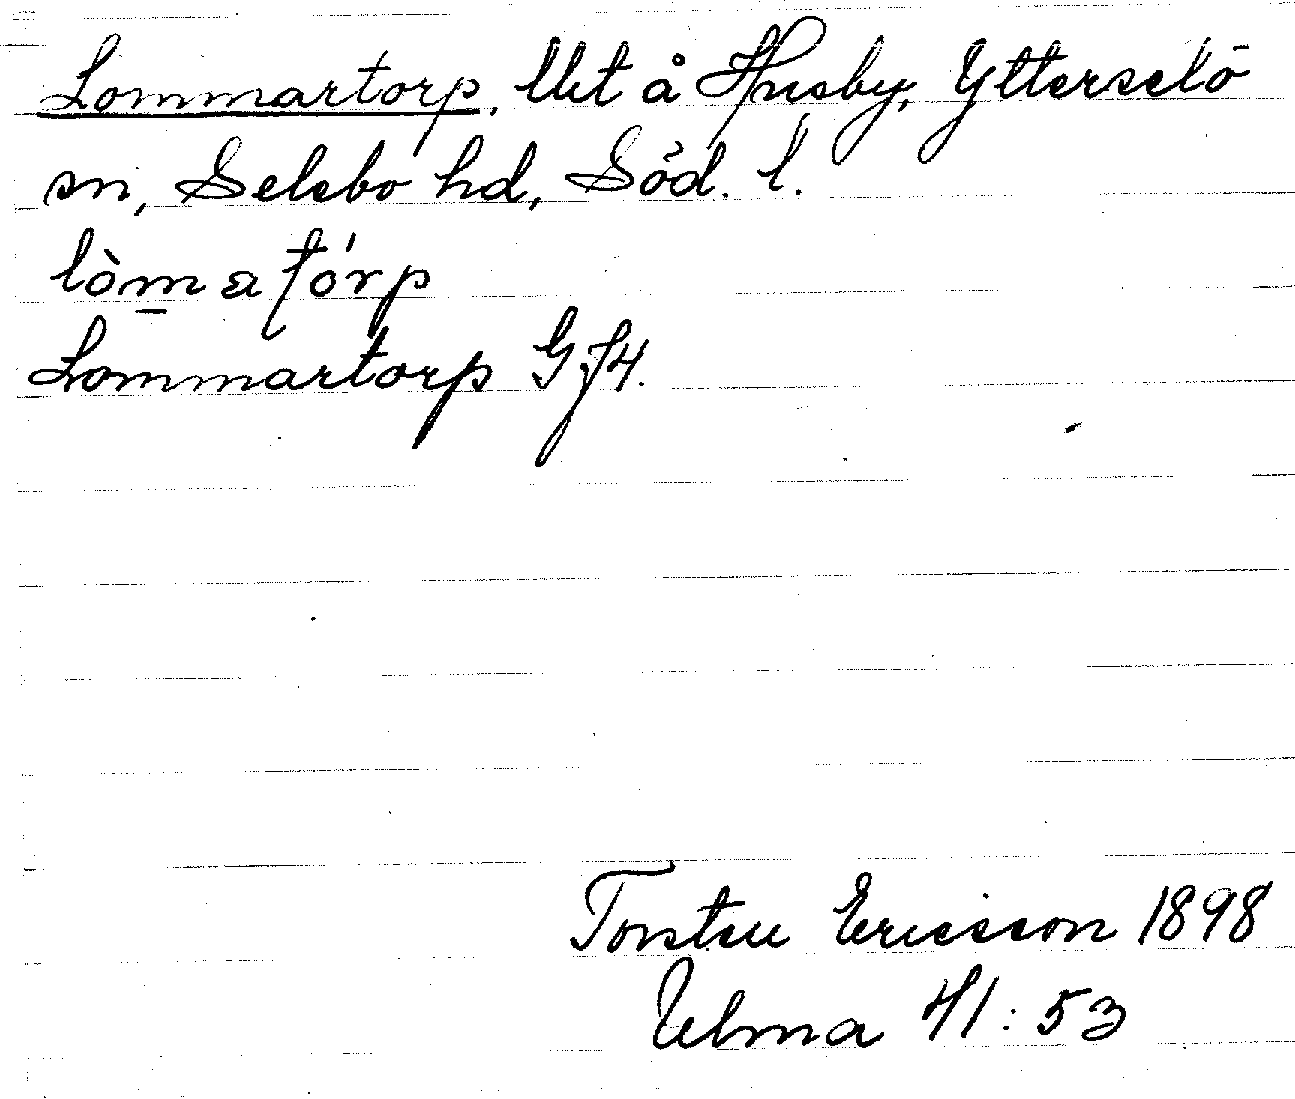 Lommartorp, Ut å Husby, Ytterselö
sn, Selebo hd, Söd. l.
lòm̲a tórp
Lommartorp G f4.
Torsten Ericsson 1898
Ulma 41:53